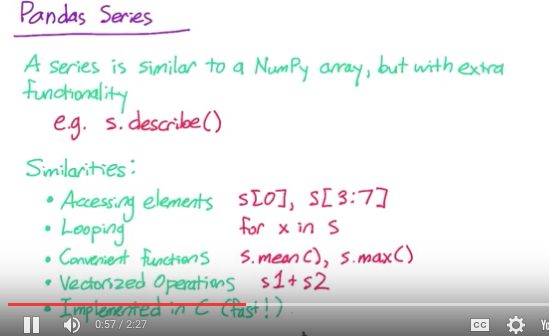 Pandas Series
A series is similar to a NumPy array, but with extra
functionality
e.g. s.describe()
Similarities:
• Accessing elements s[0], s[3:7]
• Looping for x in s
• Convenient functions s.mean(), s.max()
• Vectorized Operations s1+s2
• Implemented in C (fast!)
0:57 / 2:27 CC Yo